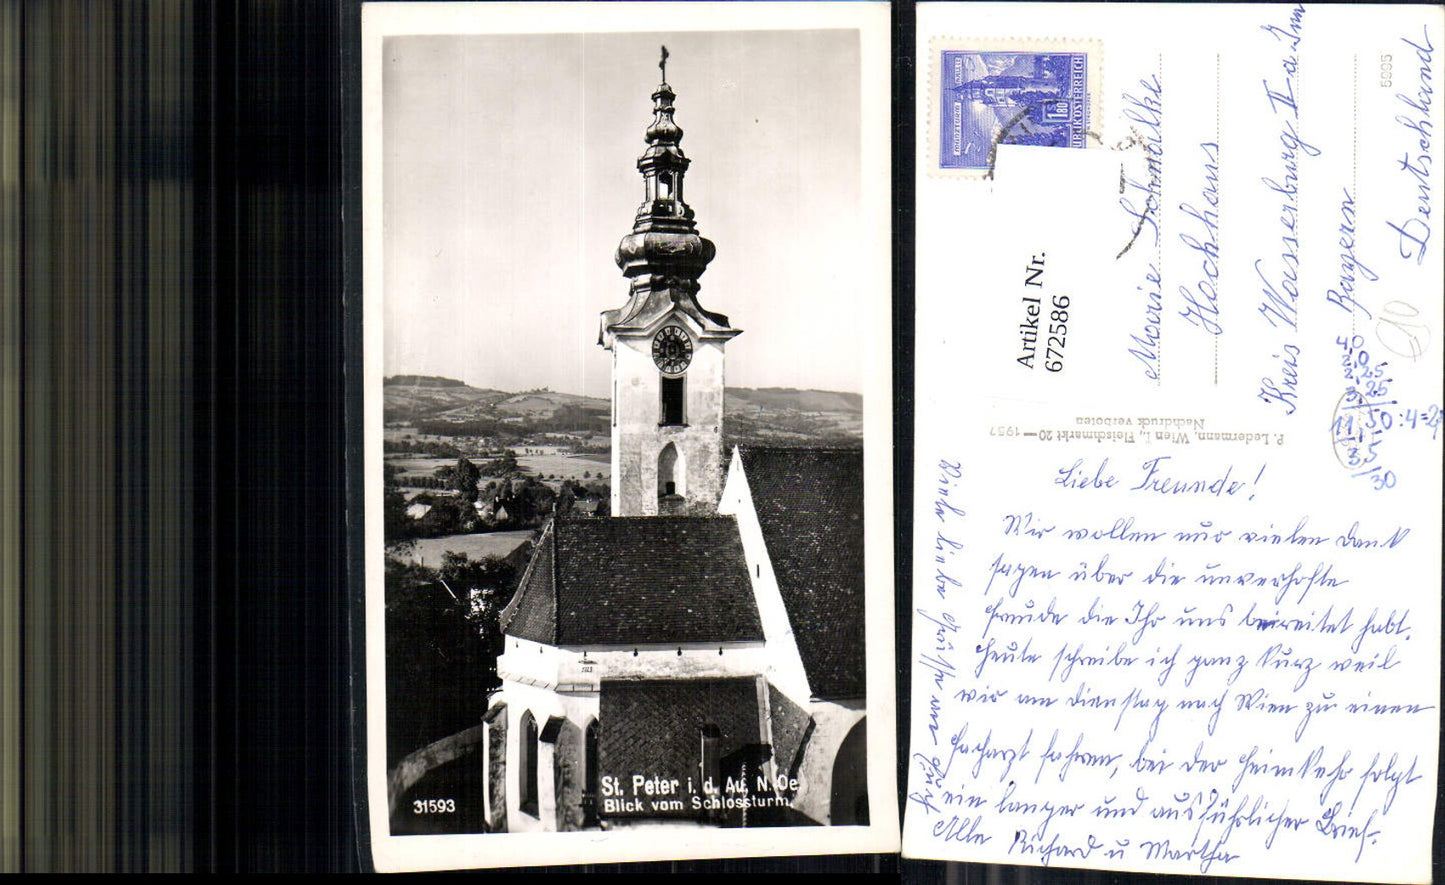 31593
St. Peter i. d. Au, N.Oe.
Blick vom Schlossturm.
REPUBLIK ÖSTERREICH
1.80
Artikel Nr.
672586
5995
Marie Schmalke
Hochhaus
Kreis Wasserburg II a Inn
Bayern
Deutschland
P. Ledermann, Wien I., Fleischmarkt 20 — 1957
Nachdruck verboten
4,0
2,0
2,25
3,25
11,50 : 4 = 2
Liebe Freunde!
Wir wollen nur vielen Dank
sagen über die unverhofte
Freude die Ihr uns bereitet habt.
Heute schreibe ich ganz kurz weil
wir am Dienstag nach Wien zu einen
Facharzt fahren, bei der Heimkehr folgt
ein langer und ausführlicher Brief.
Alle Richard u Martha
Viele liebe Grüsse an Euch